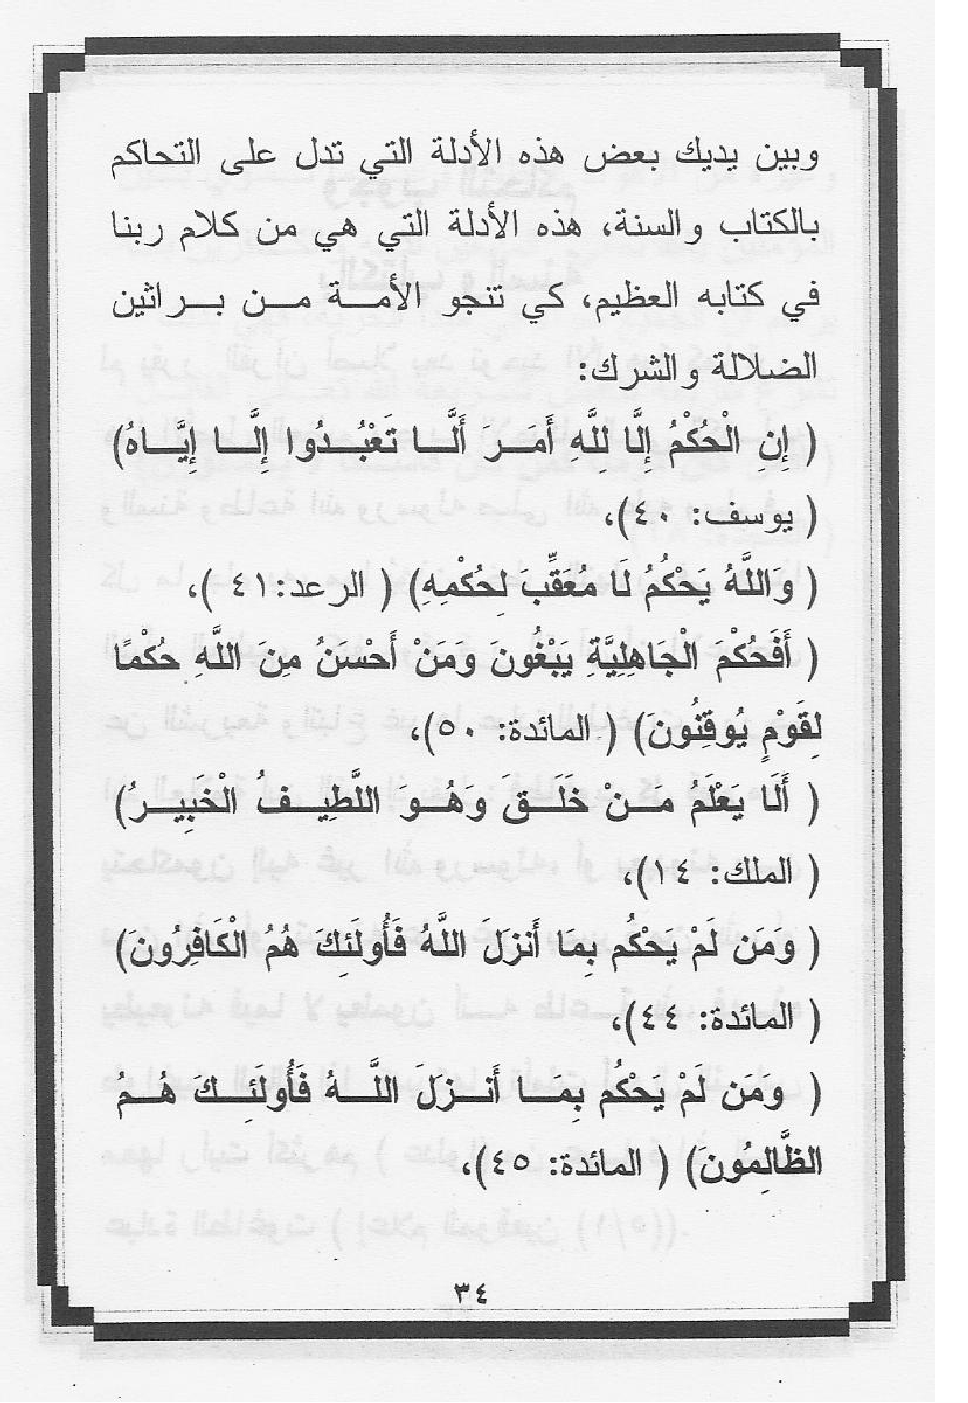 وبين يديك بعض هذه الأدلة التي تدل على التحاكم
بالكتاب والسنة، هذه الأدلة التي هي من كلام ربنا
في كتابه العظيم، كي تنجو الأمة من براثين
الضلالة والشرك:
( إِنِ الْحُكْمُ إِلَّا لِلَّهِ أَمَرَ أَلَّا تَعْبُدُوا إِلَّا إِيَّاهُ)
( يوسف: ٤٠)،
( وَاللَّهُ يَحْكُمُ لَا مُعَقِّبَ لِحُكْمِهِ) ( الرعد:٤١ )،
( أَفَحُكْمَ الْجَاهِلِيَّةِ يَبْغُونَ وَمَنْ أَحْسَنُ مِنَ اللَّهِ حُكْمًا
لِقَوْمٍ يُوقِنُونَ) ( المائدة: ٥٠)،
( أَلَا يَعْلَمُ مـنْ خَلَـقَ وَهُـوَ اللَّطِيـفُ الْخَبِيـرُ)
( الملك: ١٤)،
( وَمَن لَمْ يَحْكُم بِمَا أَنزَلَ اللَّهُ فَأُولَئِكَ هُمُ الْكَافِرُونَ)
( المائدة: ٤٤)،
( وَمَن لَمْ يَحْكُم بِمـا أَنـزلَ اللَّـهُ فَأُولَئِـكَ هُـمُ
الظَّالِمُونَ) ( المائدة: ٤٥)،
٣٤